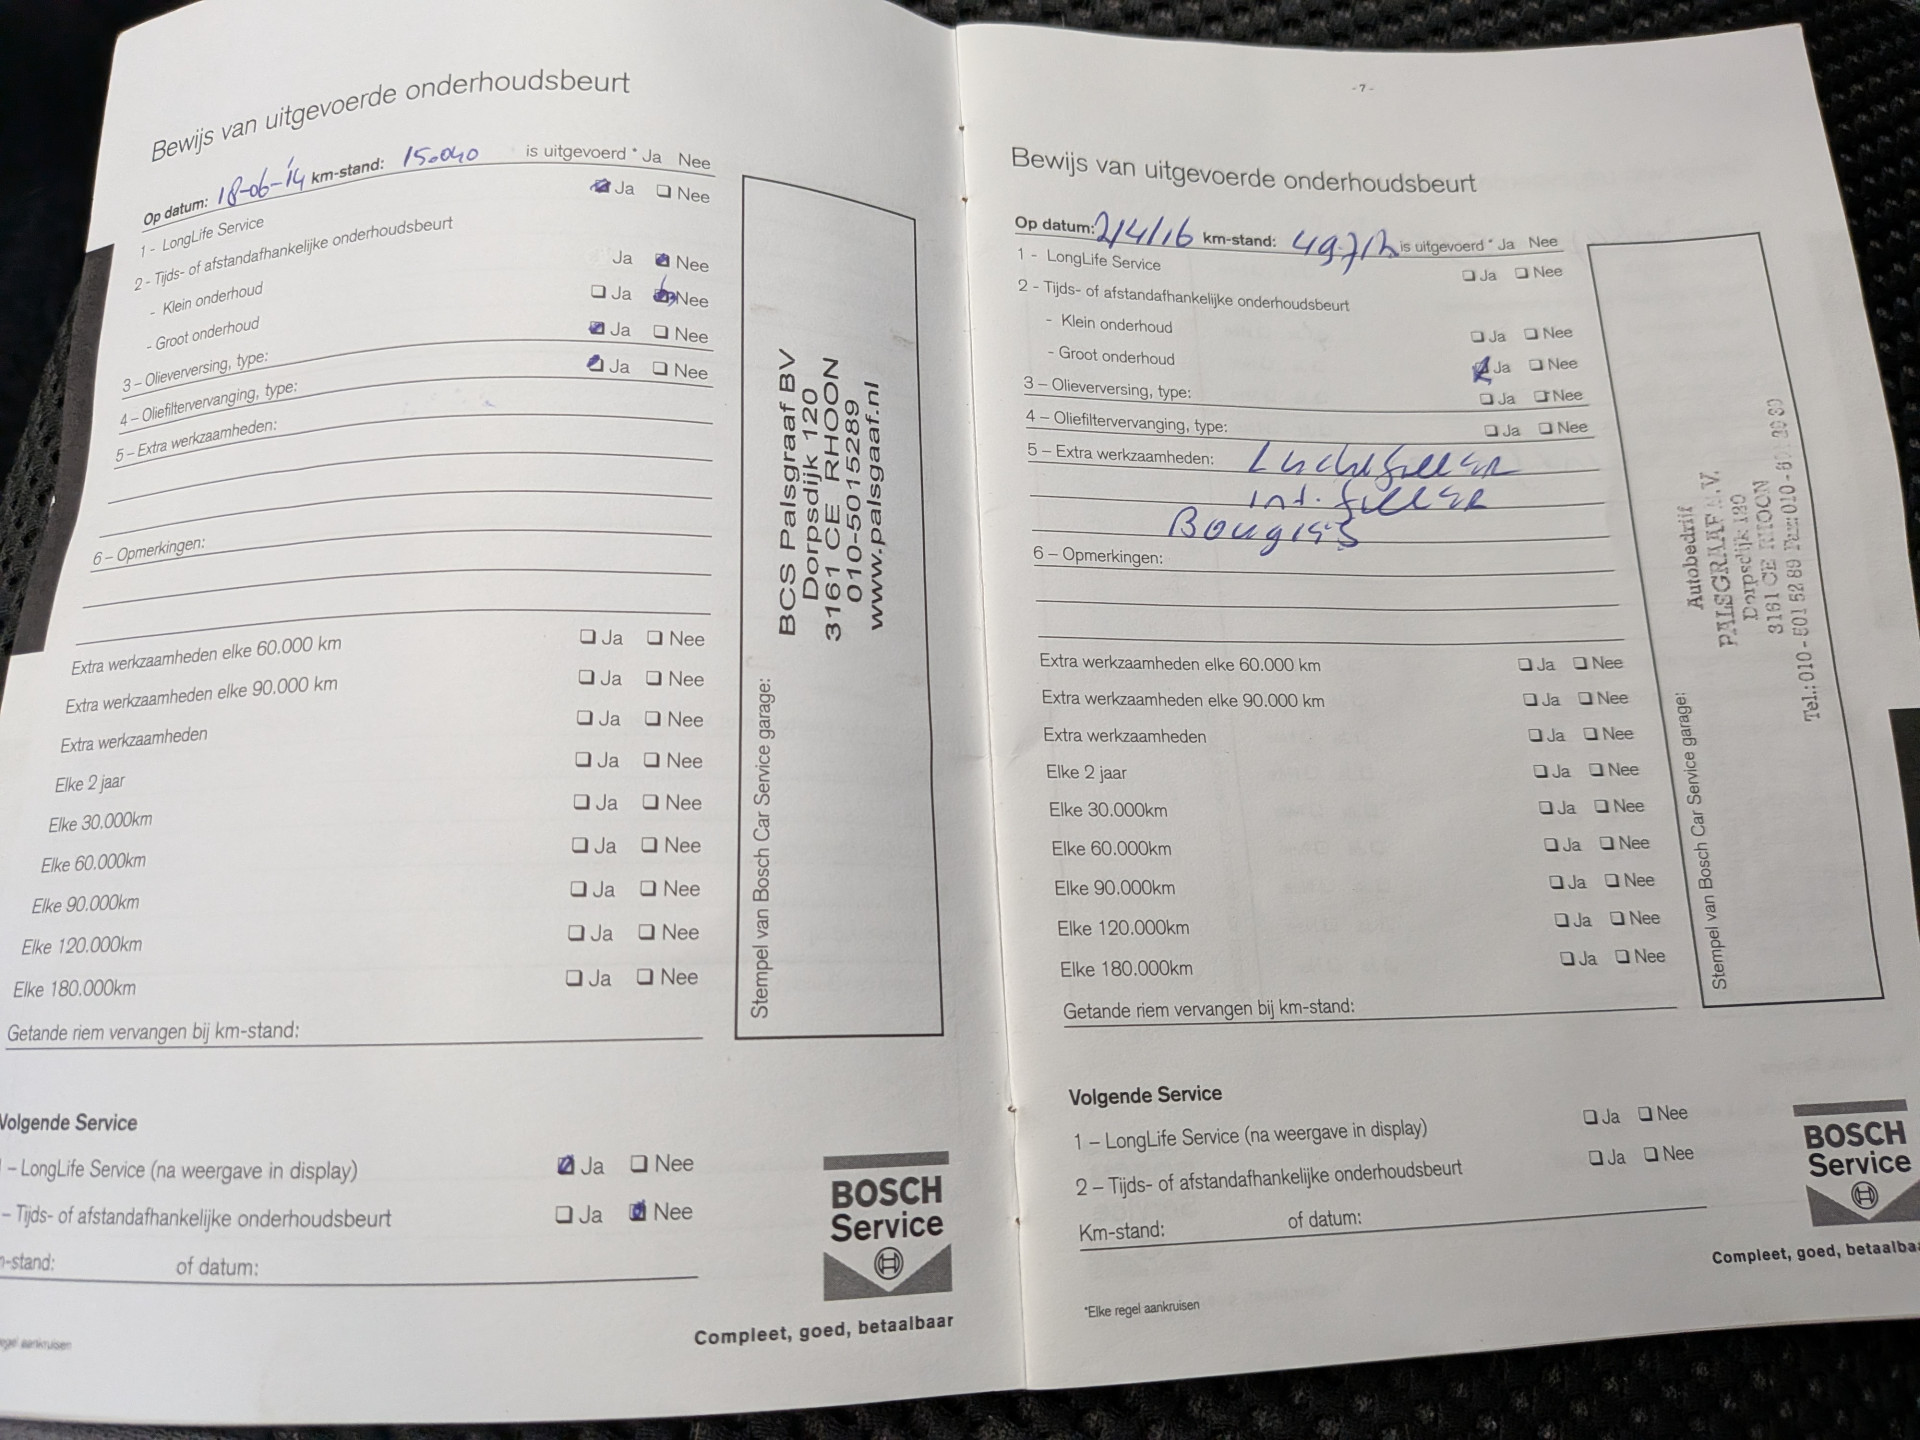 Bewijs van uitgevoerde onderhoudsbeurt
Op datum: 18-06-'14 km-stand: 15.040 is uitgevoerd * Ja Nee
1 - LongLife Service Ja Nee
2 - Tijds- of afstandafhankelijke onderhoudsbeurt
- Klein onderhoud Ja Nee
- Groot onderhoud Ja Nee
3 – Olieverversing, type: Ja Nee
4 – Oliefiltervervanging, type: Ja Nee
5 – Extra werkzaamheden:
6 – Opmerkingen:
Extra werkzaamheden elke 60.000 km Ja Nee
Extra werkzaamheden elke 90.000 km Ja Nee
Extra werkzaamheden Ja Nee
Elke 2 jaar Ja Nee
Elke 30.000km Ja Nee
Elke 60.000km Ja Nee
Elke 90.000km Ja Nee
Elke 120.000km Ja Nee
Elke 180.000km Ja Nee
Getande riem vervangen bij km-stand:
Stempel van Bosch Car Service garage:
BCS Palsgraaf BV
Dorpsdijk 120
3161 CE RHOON
010-5015289
www.palsgaaf.nl
Volgende Service
– LongLife Service (na weergave in display) Ja Nee
– Tijds- of afstandafhankelijke onderhoudsbeurt Ja Nee
-stand: of datum:
BOSCH
Service
Compleet, goed, betaalbaar
regel aankruisen
- 7 -
Bewijs van uitgevoerde onderhoudsbeurt
Op datum: 2/4/16 km-stand: is uitgevoerd * Ja Nee
1 - LongLife Service Ja Nee
2 - Tijds- of afstandafhankelijke onderhoudsbeurt
- Klein onderhoud Ja Nee
- Groot onderhoud Ja Nee
3 – Olieverversing, type: Ja Nee
4 – Oliefiltervervanging, type: Ja Nee
5 – Extra werkzaamheden: Luchtfilter
int. filter
Bougies
6 – Opmerkingen:
Extra werkzaamheden elke 60.000 km Ja Nee
Extra werkzaamheden elke 90.000 km Ja Nee
Extra werkzaamheden Ja Nee
Elke 2 jaar Ja Nee
Elke 30.000km Ja Nee
Elke 60.000km Ja Nee
Elke 90.000km Ja Nee
Elke 120.000km Ja Nee
Elke 180.000km Ja Nee
Getande riem vervangen bij km-stand:
Stempel van Bosch Car Service garage:
Autobedrijf
PALSGRAAF
Dorpsdijk 120
3161 CE RHOON
Tel.: 010 - 501 52 89 Fax: 010 -
Volgende Service
1 – LongLife Service (na weergave in display) Ja Nee
2 – Tijds- of afstandafhankelijke onderhoudsbeurt Ja Nee
Km-stand: of datum:
BOSCH
Service
Compleet, goed, betaalba
*Elke regel aankruisen